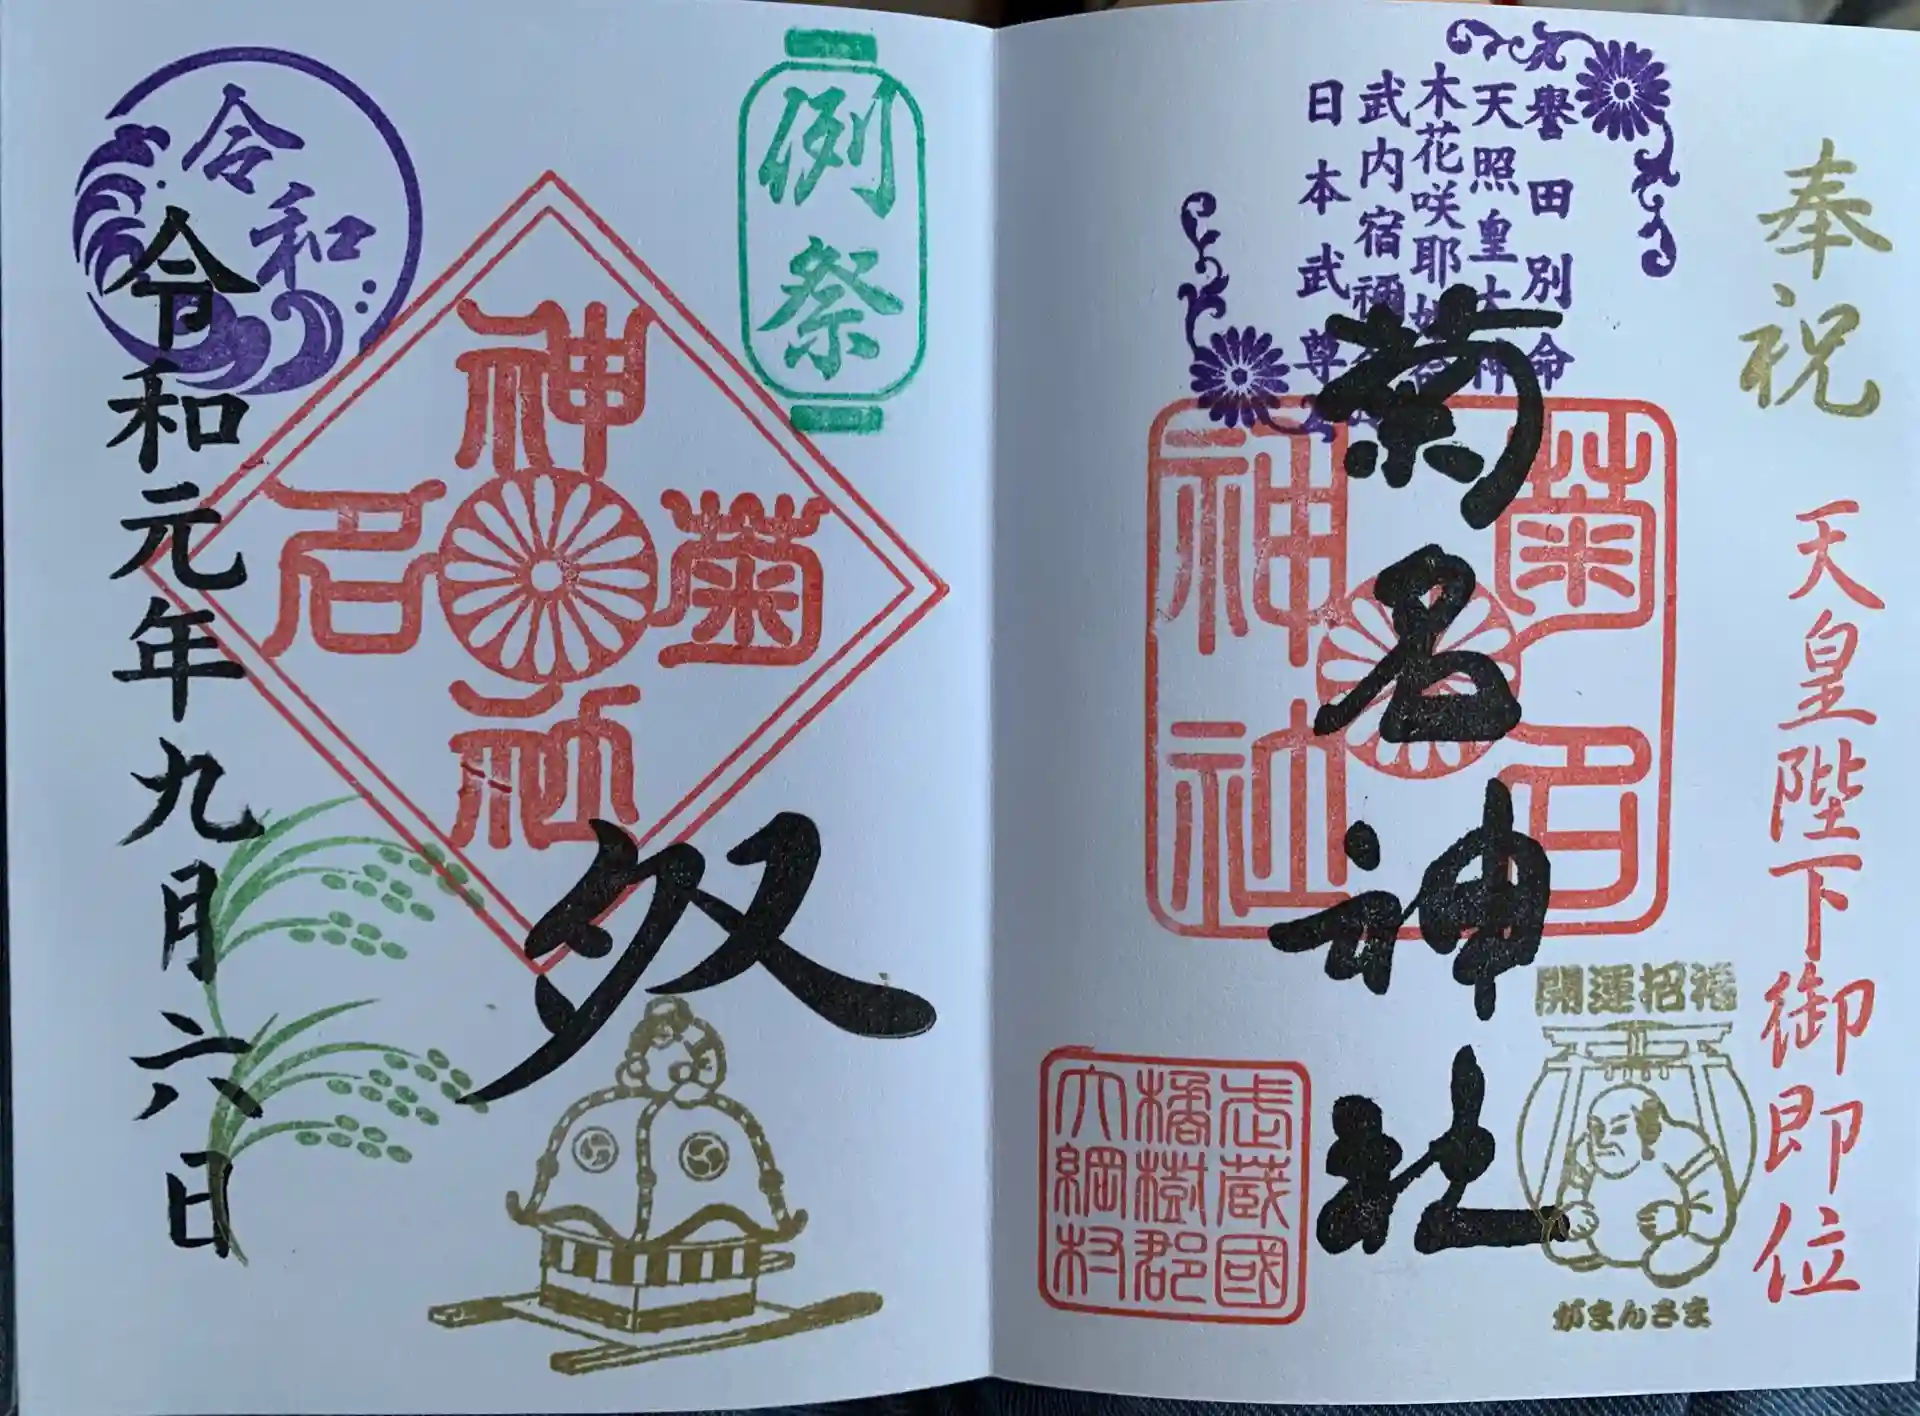 奉祝
天皇陛下御即位
譽田別命
天照皇大神
木花咲耶姫命
武内宿禰命
日本武尊
菊名神社
菊名
神社
開運招福
がまんさま
武蔵國
橘樹郡
大綱村
例祭
神
菊名
社
令和
令和元年九月六日